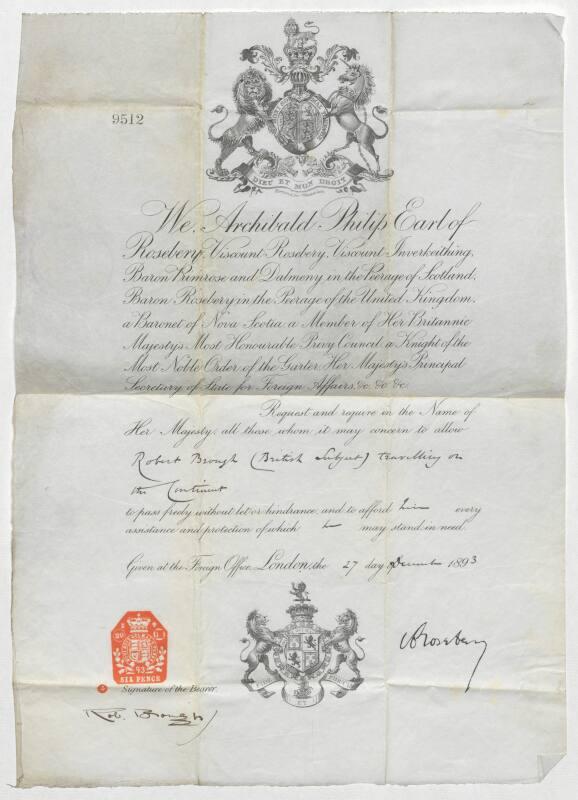 9512
DIEU ET MON DROIT
We, Archibald Philip Earl of
Rosebery, Viscount Rosebery, Viscount Inverkeithing,
Baron Primrose and Dalmeny in the Peerage of Scotland,
Baron Rosebery in the Peerage of the United Kingdom,
a Baronet of Nova Scotia a Member of Her Britannic
Majesty's Most Honourable Privy Council a Knight of the
Most Noble Order of the Garter, Her Majesty's Principal
Secretary of State for Foreign Affairs, &c. &c. &c.
Request and require in the Name of
Her Majesty, all those whom it may concern to allow
Robert Brough (British Subject) travelling on
the Continent
to pass freely without let or hindrance, and to afford him every
assistance and protection of which he may stand in need.
Given at the Foreign Office, London, the 27 day December 1893
Rosebery
93
SIX PENCE
Signature of the Bearer.
Rob. Brough